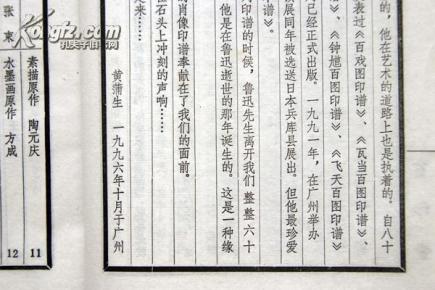 的，他在艺术的道路上也是执着的。自八十
表过《百戏图印谱》、《瓦当百图印谱》、
》、《钟馗百图印谱》、《飞天百图印谱》
已经正式出版。一九九一年，在广州举办
展同年被选送日本兵库县展出。但他最珍爱
谱》。
印谱的时候，鲁迅先生离开我们整整六十
他是在鲁迅逝世的那年诞生的。这是一种缘
的肖像印谱奉献在了我们的面前。
石头上冲刻的声响……
起来……
黄蒲生 一九九六年十月于广州
素描原作 陶元庆 11
水墨画原作 方成 12
张束
kongfz.com
孔夫子旧书网